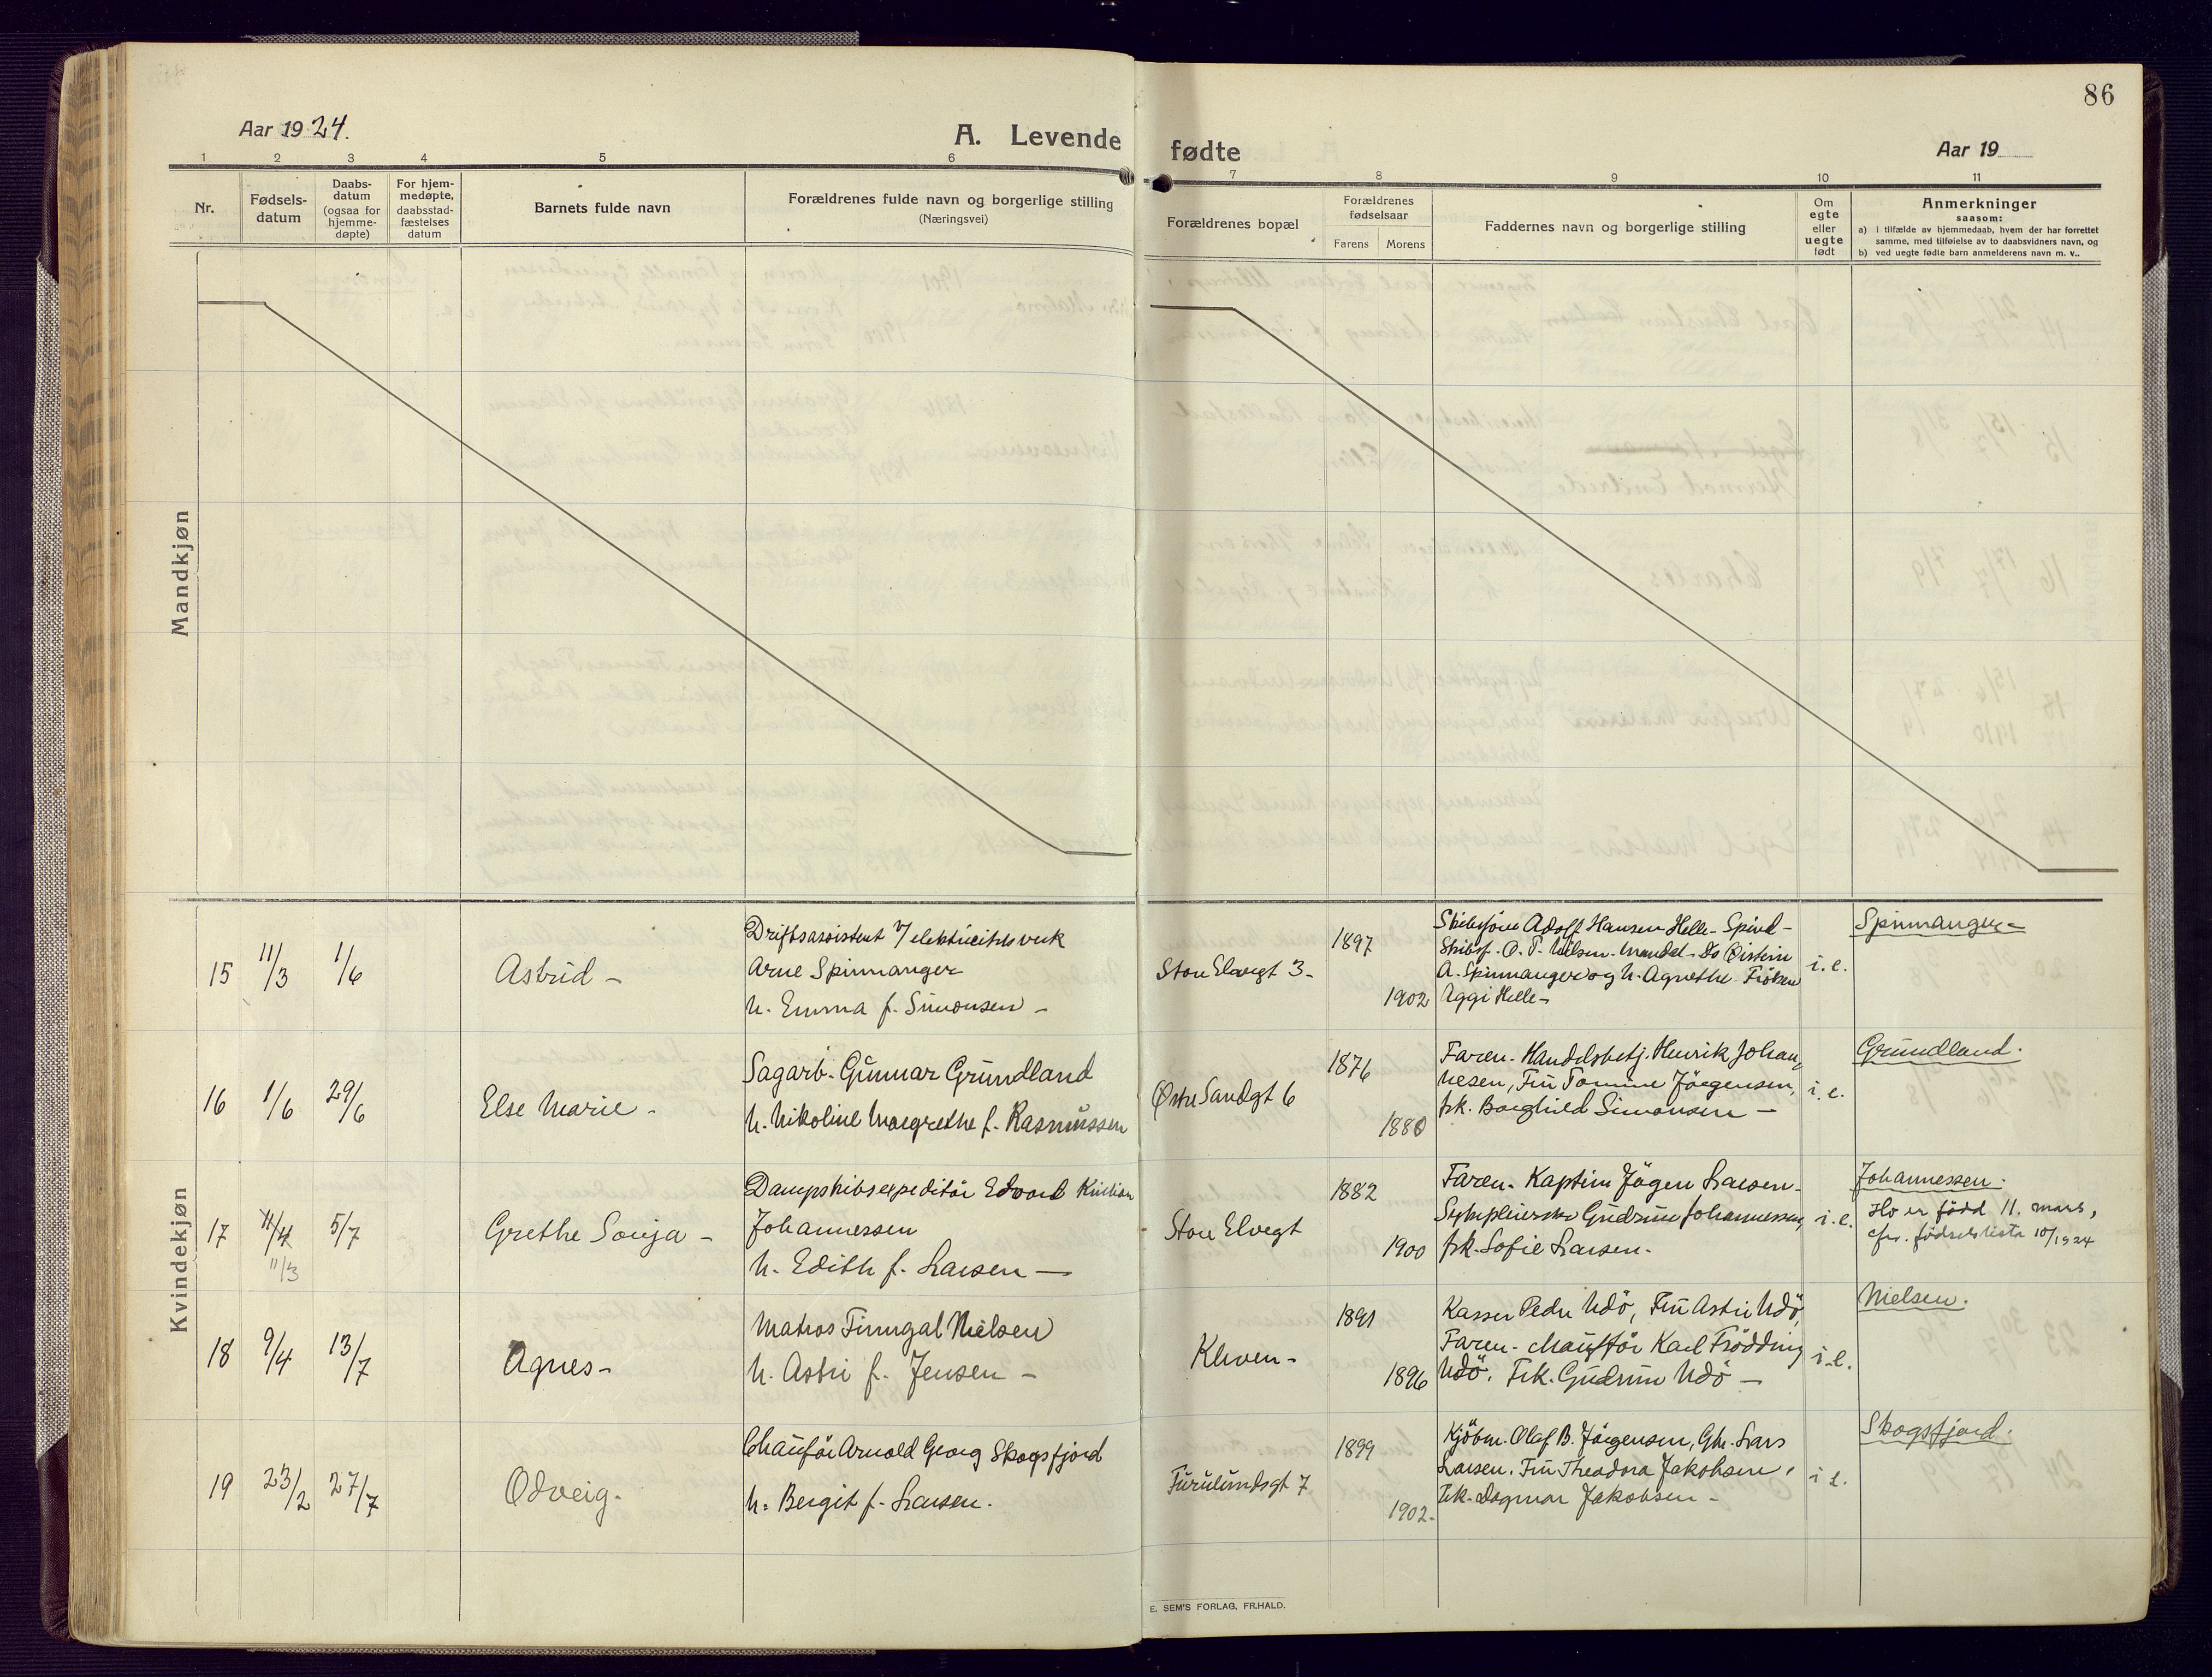 86
Aar 1924.
A. Levende fødte
Aar 19
1 2 3 4 5 6 7 8 9 10 11
Nr.
Fødsels-
datum
Daabs-
datum
(ogsaa for
hjemme-
døpte)
For hjem-
medøpte,
daabsstad-
fæstelses
datum
Barnets fulde navn
Forældrenes fulde navn og borgerlige stilling
(Næringsvei)
Forældrenes bopæl
Forældrenes
fødselsaar
Farens Morens
Faddernes navn og borgerlige stilling
Om
egte
eller
uegte
født
Anmerkninger
saasom:
a) i tilfælde av hjemmedaab, hvem der har forrettet
samme, med tilføielse av to daabsvidners navn, og
b) ved uegte fødte barn anmelderens navn m. v..
Mandkjøn
Kvindekjøn
15
11/3
1/6
Astrid -
Driftsassistent v/ elektricitetsverk
Arne Spinnanger
h. Emma f. Simonsen -
Store Elvegt 3.
1897
1902
Skibsfører Adolf Hansen Helle - Spind -
Skibsf. O. T. Nilsen. Mandal - Do Öistein
A. Spinnanger og h. Agnethe. Fröken
Aggi Helle -
i. e.
Spinnanger -
16
1/6
29/6
Else Marie -
Sagarb. Gunnar Grundland
h. Nikoline Margrethe f. Rasmussen
Østre Sandgt 6
1876
1880
Faren. Handelsbetj. Henrik Johan-
nesen, Fru Tomine Jörgensen,
frk. Borghild Simonsen -
i. e.
Grundland.
17
11/4
11/3
5/7
Grethe Sonja -
Dampskibsexpeditör Edvard Kristian
Johannessen
h. Edith f. Larsen -
Store Elvegt
1882
1900
Faren. Kaptein Jörgen Larsen.
Sykepleierske Gudrun Johannessen,
frk. Sofie Larsen.
i. e.
Johannessen.
Ho er född 11. mars,
cfr. födselslista 10/1924
18
9/4
13/7
Agnes -
Matros Finngal Nielsen
h. Astri f. Jensen -
Kleven -
1891
1896
Kasser Peder Udö, Fru Astri Udö,
Faren. Chaufför Karl Frödding
Udö. Frk. Gudrun Udö -
i. e.
Nielsen.
19
23/2
27/7
Odveig.
Chauför Arnold Georg Skogsfjord
h. Bergit f. Larsen.
Furulundsgt 7
1899
1902.
Kjöbm. Olaf B. Jörgensen, Ghr. Lars
Larsen. Fru Theodora Jakobsen,
Frk. Dagmar Jakobsen -
i e.
Skogsfjord.
E. SEM'S FORLAG, FR.HALD.